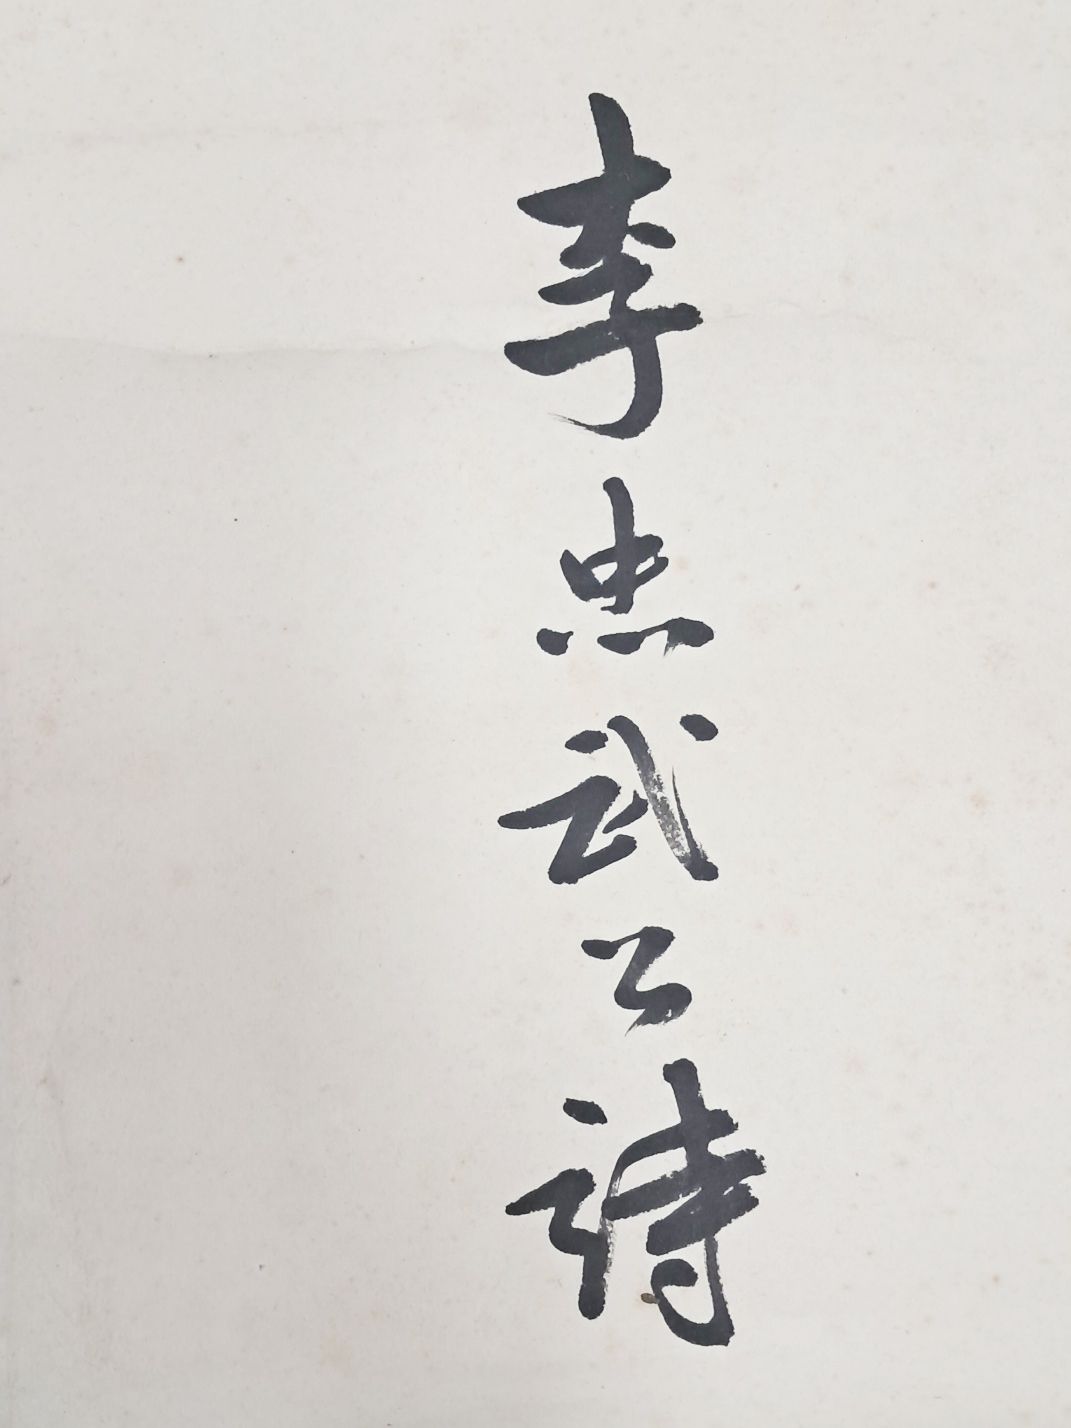 李忠武公詩